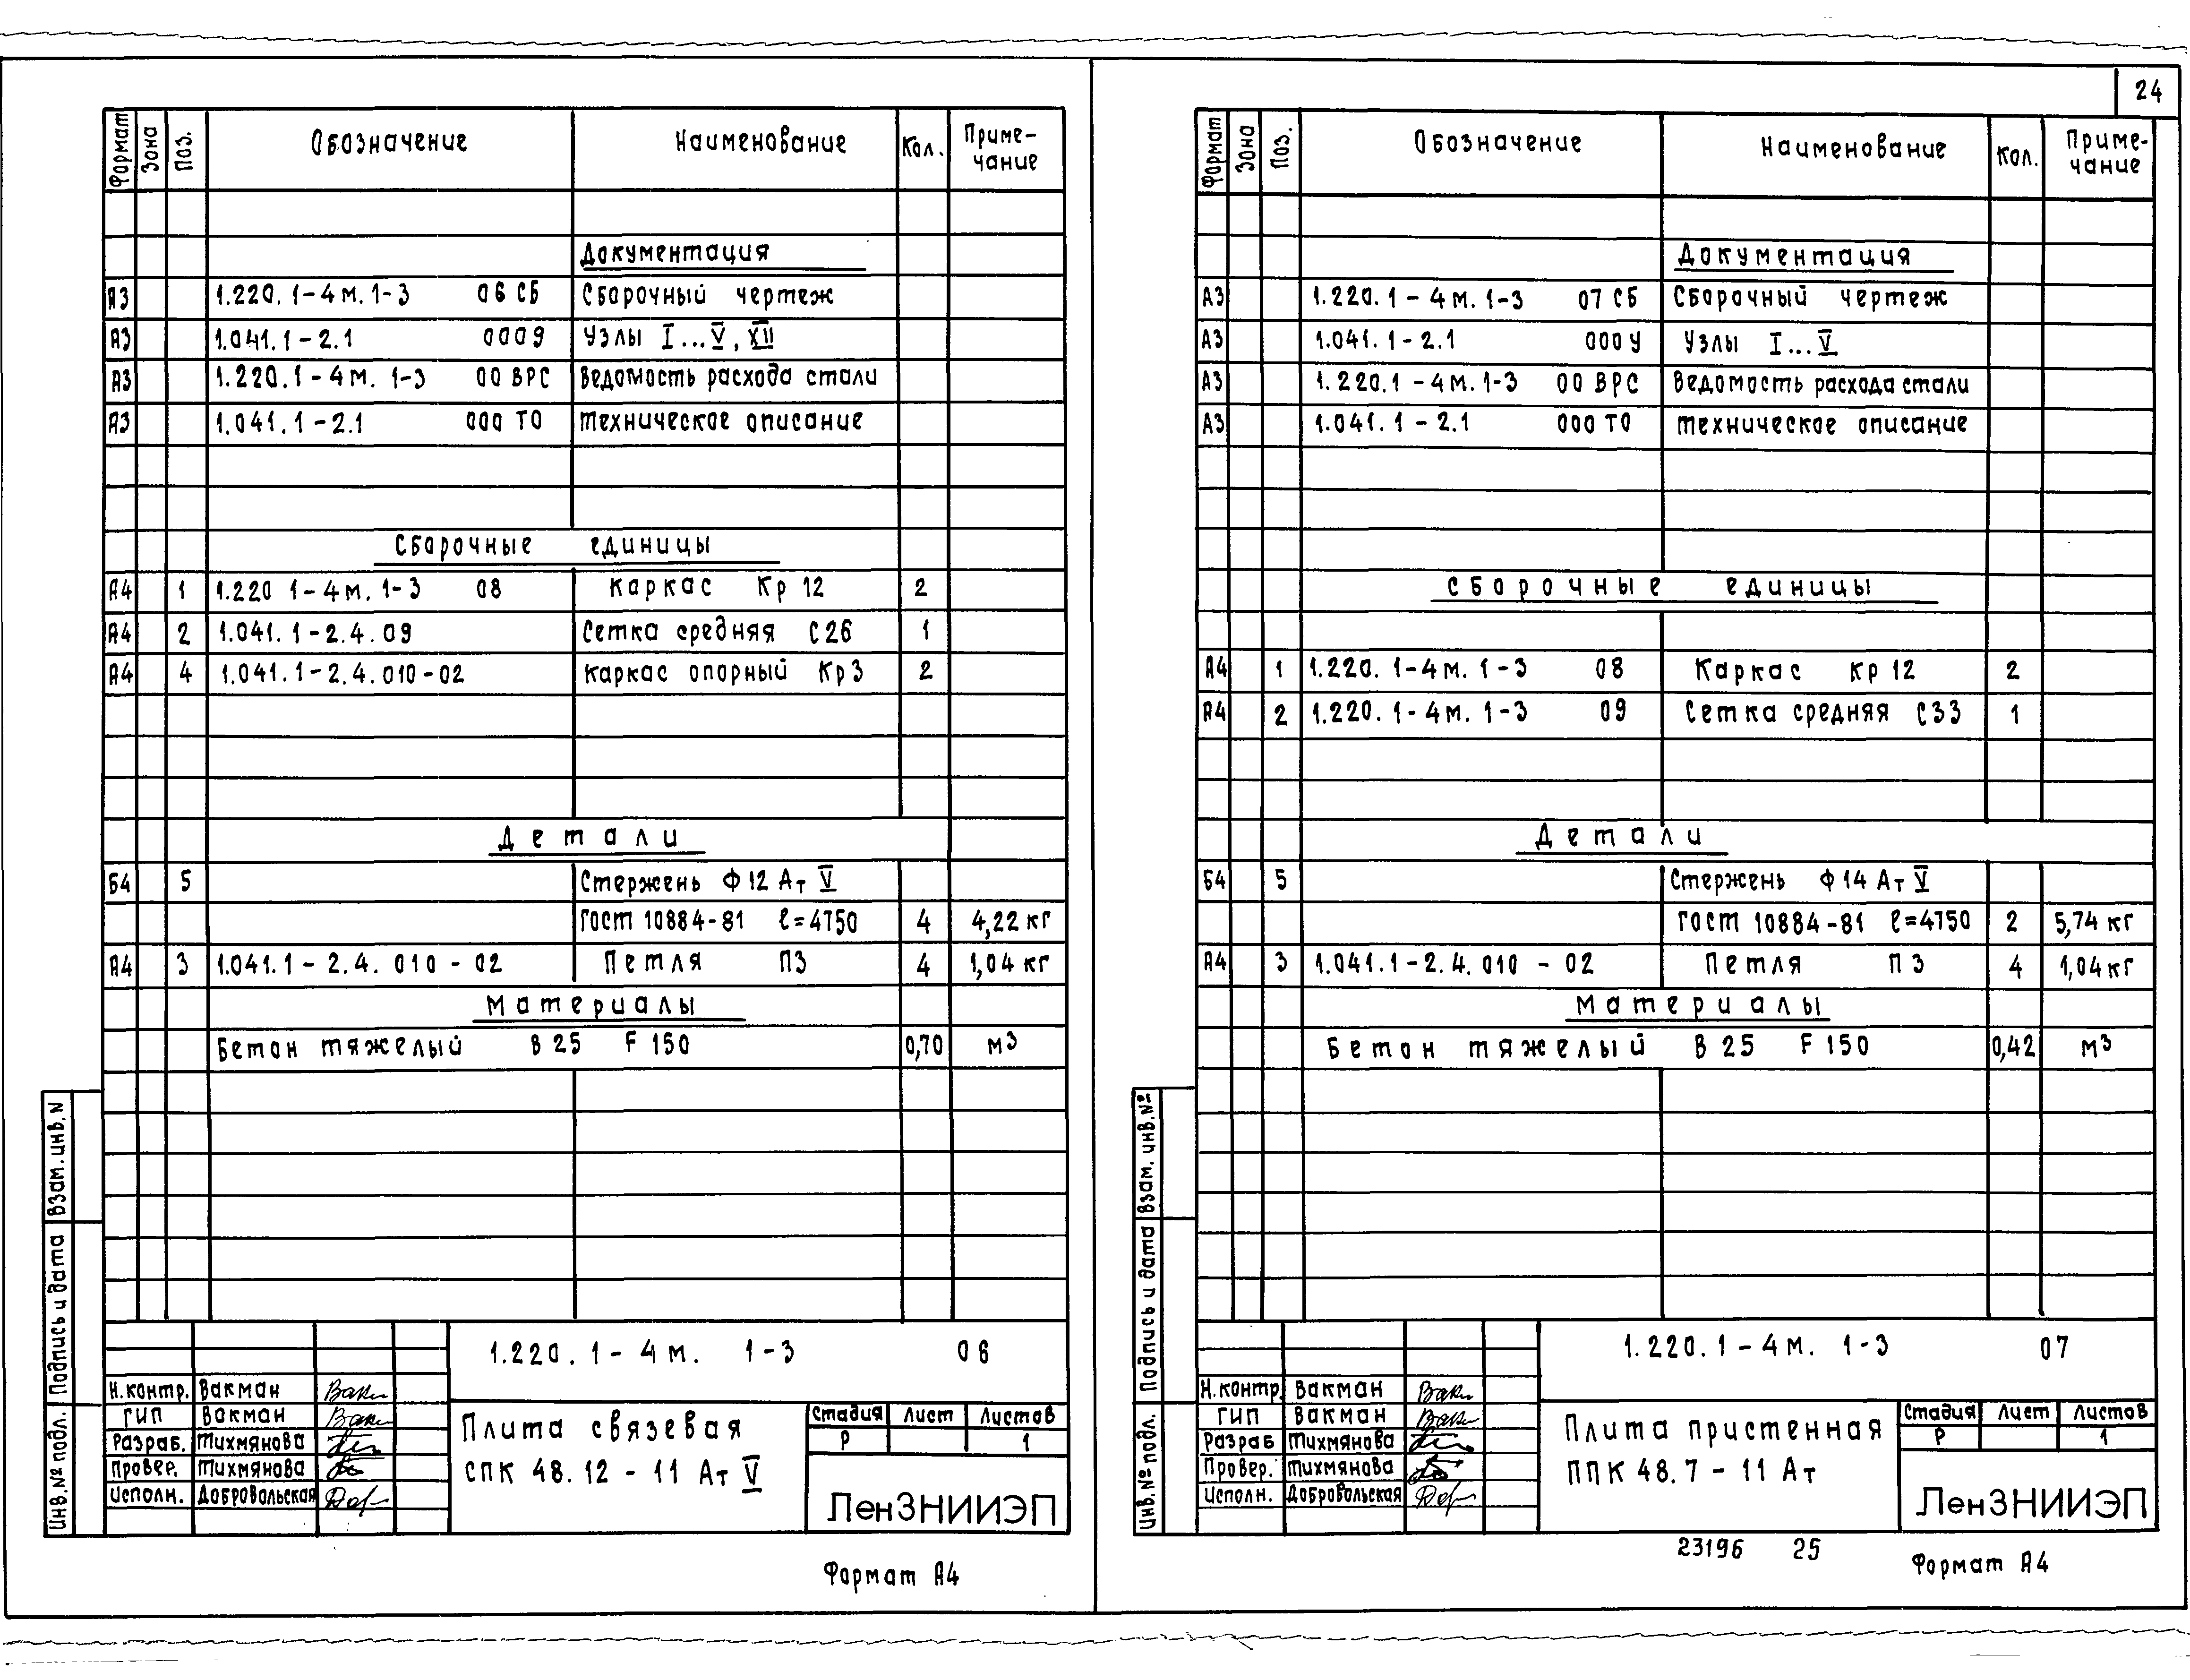 Формат Зона Поз. Обозначение Наименование Кол. Приме-
чание
Документация
А3 1.220.1-4м.1-3 06 СБ Сборочный чертеж
А3 1.041.1-2.1 000У Узлы I...V, XII
А3 1.220.1-4м. 1-3 00 ВРС Ведомость расхода стали
А3 1.041.1-2.1 000 ТО Техническое описание
Сборочные единицы
А4 1 1.220 1-4м. 1-3 08 Каркас Кр 12 2
А4 2 1.041.1-2.4.09 Сетка средняя С26 1
А4 4 1.041.1-2.4.010-02 Каркас опорный Кр3 2
Детали
Б4 5 Стержень Ф12 Ат V
ГОСТ 10884-81 ℓ=4750 4 4,22 кг
А4 3 1.041.1-2.4.010-02 Петля П3 4 1,04 кг
Материалы
Бетон тяжелый В 25 F 150 0,70 м3
Взам. инв. N
Подпись и дата
Инв. № подл.
1.220.1-4м. 1-3 06
Н.контр. Вакман
ГИП Вакман
Разраб. Тихмянова
Провер. Тихмянова
Исполн. Добровольская
Плита связевая
СПК 48.12-11 Ат V
Стадия Лист Листов
Р 1
ЛенЗНИИЭП
Формат А4
24
Формат Зона Поз. Обозначение Наименование Кол. Приме-
чание
Документация
А3 1.220.1-4м.1-3 07 СБ Сборочный чертеж
А3 1.041.1-2.1 000 У Узлы I...V
А3 1.220.1-4м.1-3 00 ВРС Ведомость расхода стали
А3 1.041.1-2.1 000 ТО Техническое описание
Сборочные единицы
А4 1 1.220.1-4м.1-3 08 Каркас Кр 12 2
А4 2 1.220.1-4м.1-3 09 Сетка средняя С33 1
Детали
Б4 5 Стержень Ф14 Ат V
ГОСТ 10884-81 ℓ=4750 2 5,74 кг
А4 3 1.041.1-2.4.010-02 Петля П3 4 1,04 кг
Материалы
Бетон тяжелый В 25 F 150 0,42 м3
Взам. инв. №
Подпись и дата
Инв. № подл.
1.220.1-4м. 1-3 07
Н.контр. Вакман
ГИП Вакман
Разраб Тихмянова
Провер. Тихмянова
Исполн. Добровольская
Плита пристенная
ППК 48.7-11 Ат
Стадия Лист Листов
Р 1
ЛенЗНИИЭП
23196 25
Формат А4